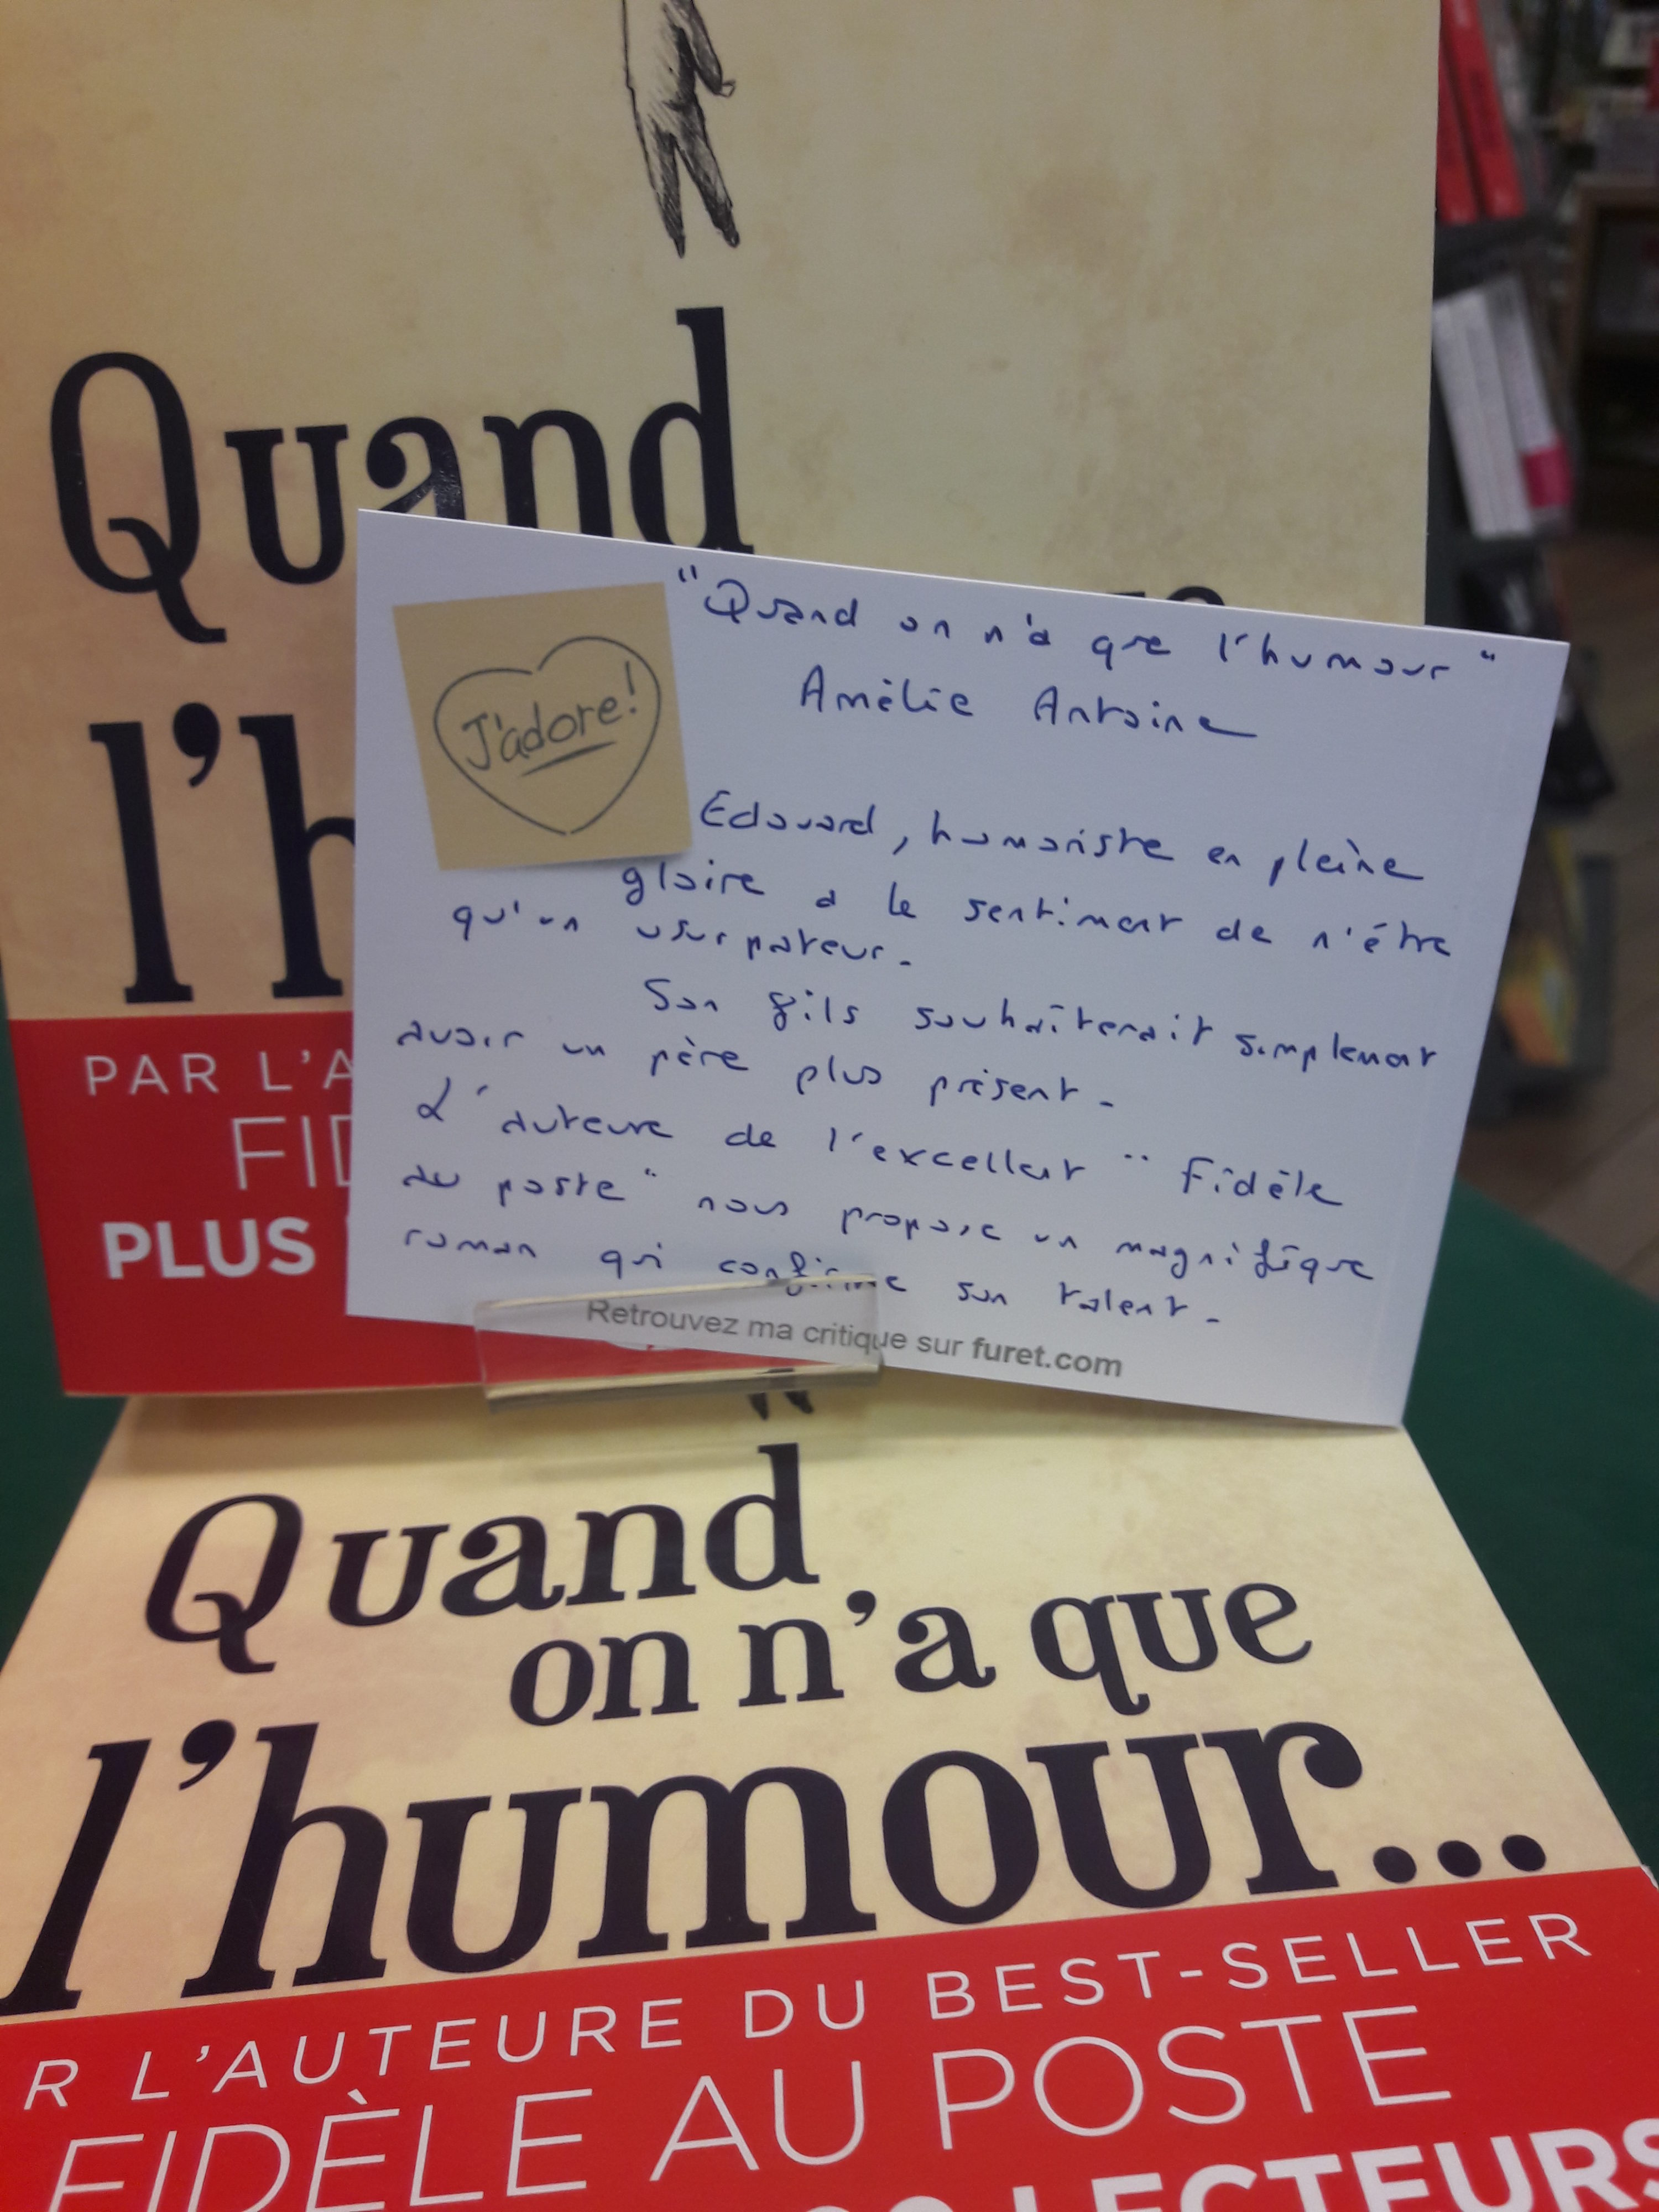 Quand
l'h
PAR L'A
FID
PLUS
J'adore!
"Quand on n'a que l'humour"
Amélie Antoine
Edouard, humoriste en pleine
gloire a le sentiment de n'être
qu'un usurpateur.
Son fils souhaîterait simplement
avoir un père plus présent.
L'auteure de l'excellent "Fidèle
au poste" nous propose un magnifique
roman qui confirme son talent.
Retrouvez ma critique sur furet.com
Quand
on n'a que
l'humour...
R L'AUTEURE DU BEST-SELLER
FIDÈLE AU POSTE
LECTEURS